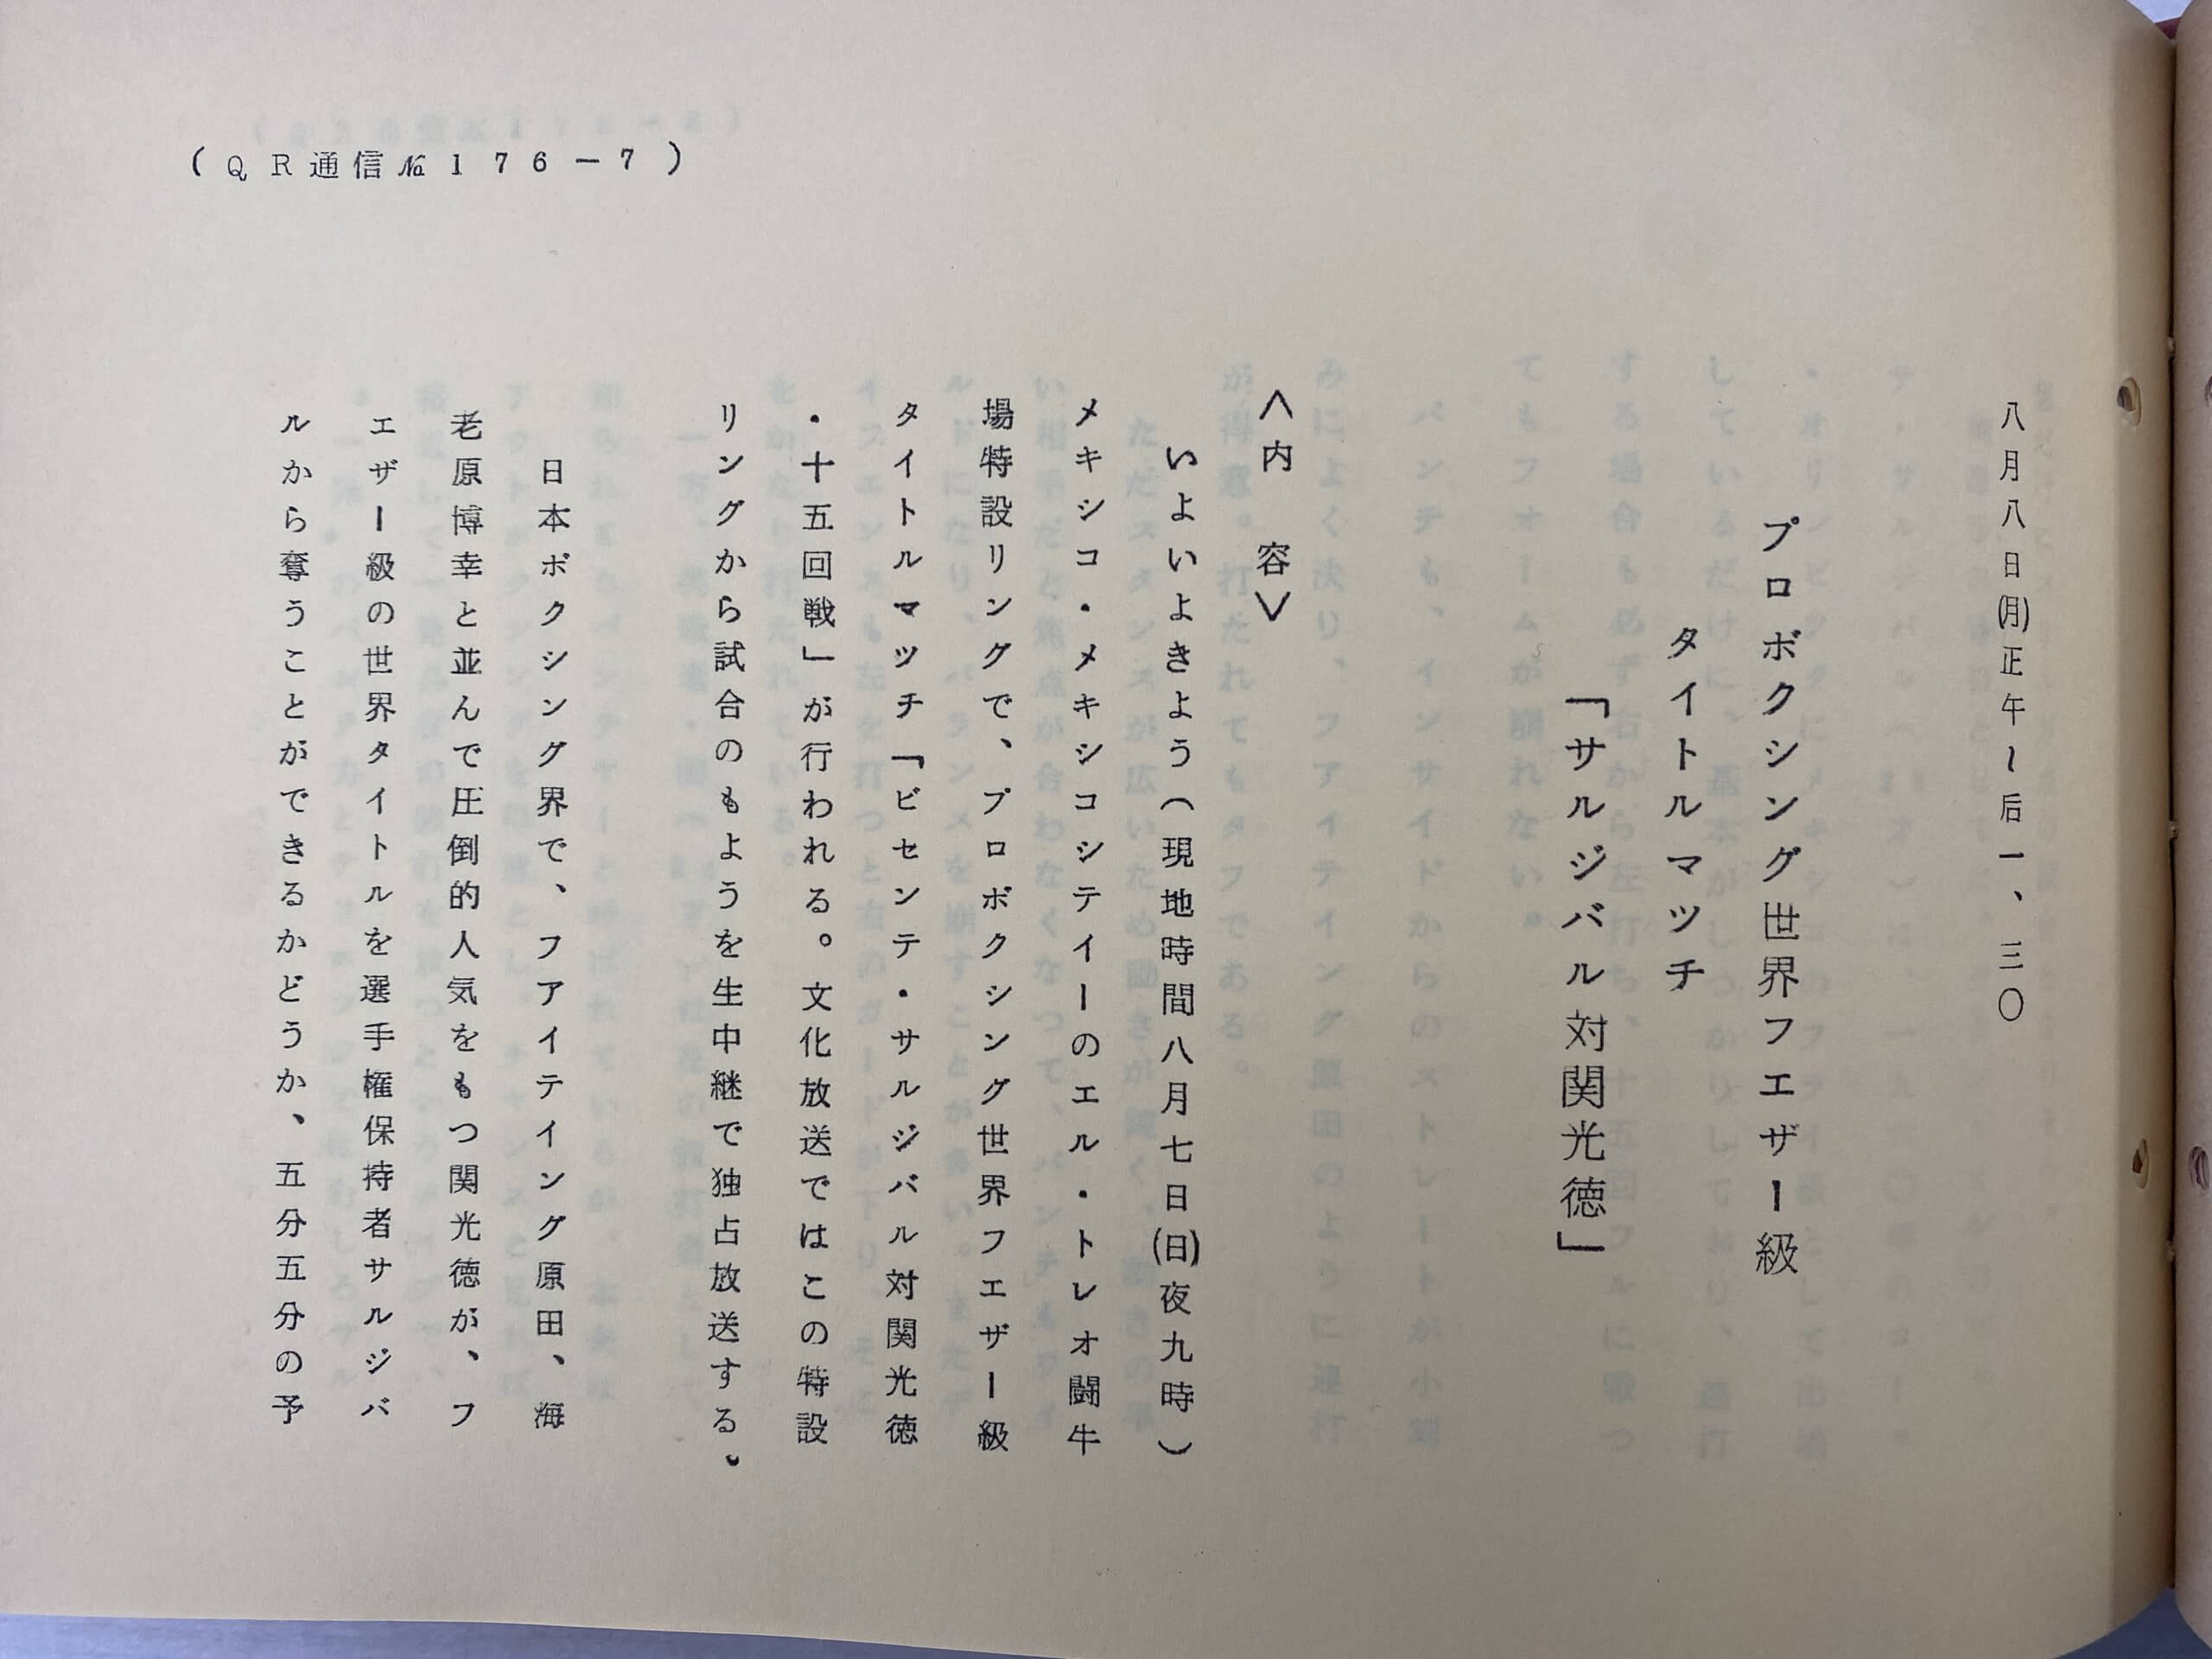 (QR通信№176-7)
八月八日(月)正午~后一、三〇
プロボクシング世界フエザー級
タイトルマッチ
「サルジバル対関光徳」
<内　容>
いよいよきよう(現地時間八月七日(日)夜九時)
メキシコ・メキシコシテイーのエル・トレオ闘牛
場特設リングで、プロボクシング世界フエザー級
タイトルマッチ「ビセンテ・サルジバル対関光徳
・十五回戦」が行われる。文化放送ではこの特設
リングから試合のもようを生中継で独占放送する。
日本ボクシング界で、フアイテイング原田、海
老原博幸と並んで圧倒的人気をもつ関光徳が、フ
エザー級の世界タイトルを選手権保持者サルジバ
ルから奪うことができるかどうか、五分五分の予